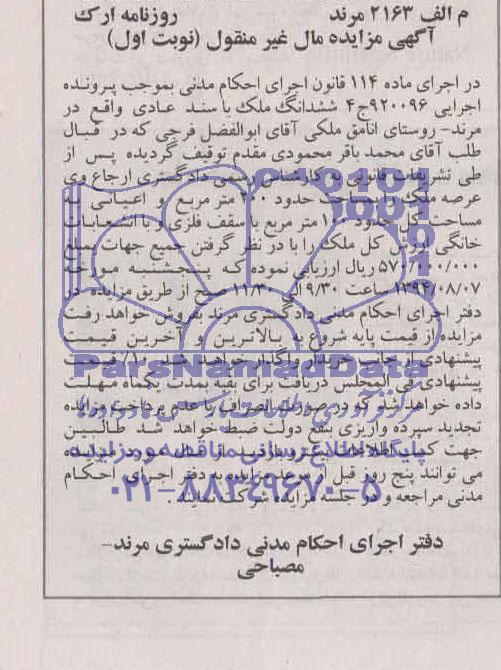 م الف ۲۱۶۳ مرند روزنامه ارک
آگهی مزایده مال غیر منقول (نوبت اول)
در اجرای ماده ۱۱۴ قانون اجرای احکام مدنی بموجب پرونده
اجرایی ۹۲۰۰۹۶ج۴ ششدانگ ملک با سند عادی واقع در
مرند- روستای انامق ملکی آقای ابوالفضل فرجی که در قبال
طلب آقای محمد باقر محمودی مقدم توقیف گردیده پس از
طی تشریفات قانونی به کارشناس رسمی دادگستری ارجاع وی
عرصه ملک را بمساحت حدود متر مربع و اعیانی به
مساحت کل حدود متر مربع با سقف فلزی و با انشعابات
خانگی ارزش کل ملک را با در نظر گرفتن جمیع جهات بمبلغ
۵۷۰/۰۰۰/۰۰۰ ریال ارزیابی نموده که پنجشنبه مورخه
۱۳۹۴/۰۸/۰۷ ساعت ۹/۳۰ الی ۱۱/۳۰ صبح از طریق مزایده در
دفتر اجرای احکام مدنی دادگستری مرند بفروش خواهد رفت
مزایده از قیمت پایه شروع به بالاترین و آخرین قیمت
پیشنهادی از جانب خریدار واگذار خواهد شد ۱۰٪ قیمت
پیشنهادی فی المجلس دریافت برای بقیه بمدت یکماه مهلت
داده خواهد شد که در صورت انصراف یا عدم پرداخت مزایده
تجدید سپرده واریزی بنفع دولت ضبط خواهد شد طالبین
جهت کسب اطلاعات بیشتر و بازدید از مال مورد مزایده
می توانند پنج روز قبل از موعد مزایده به دفتر اجرای احکام
مدنی مراجعه و در جلسه مزایده شرکت نمایند.
دفتر اجرای احکام مدنی دادگستری مرند-
مصباحی
ParsNamadData
پایگاه اطلاع رسانی مناقصه و مزایده
۰۲۱-۸۸۳۴۹۶۷۰-۵